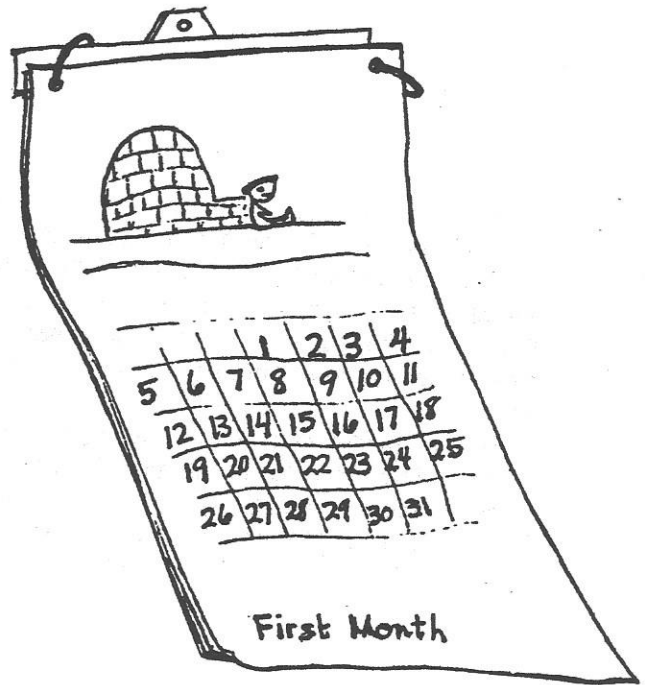 1 2 3 4
5 6 7 8 9 10 11
12 13 14 15 16 17 18
19 20 21 22 23 24 25
26 27 28 29 30 31
First Month